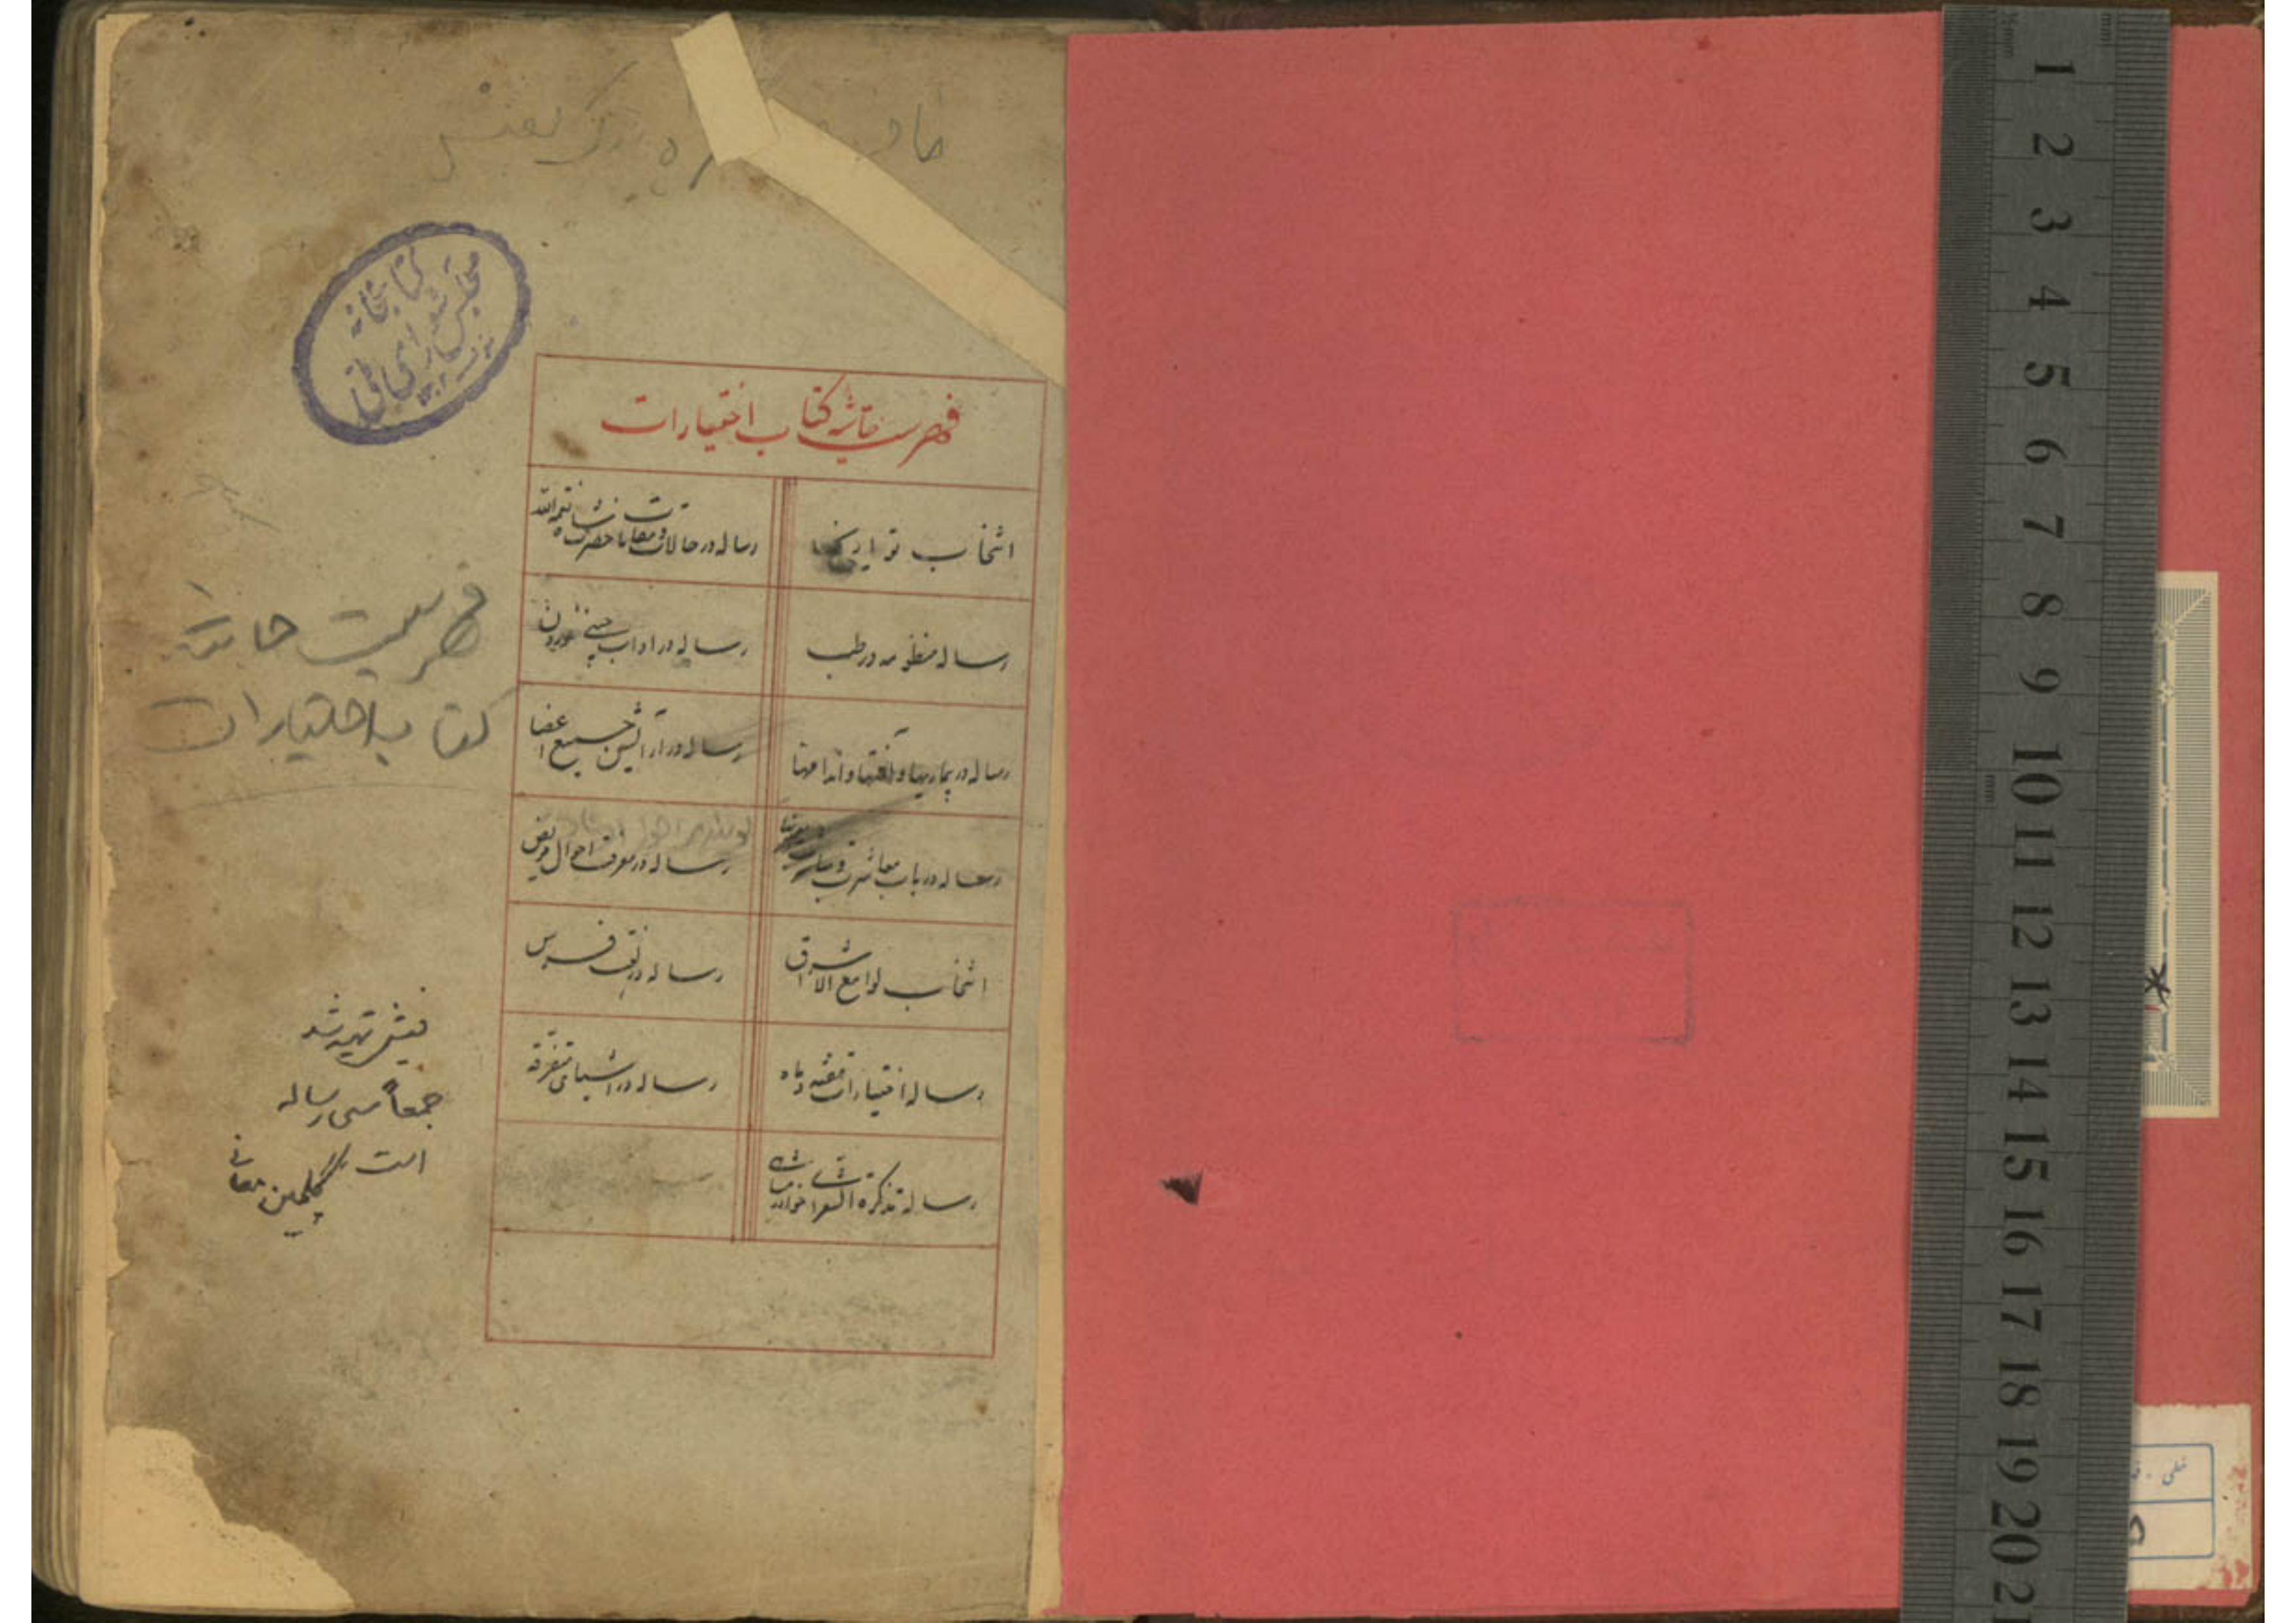 کتابخانه
مجلس شورای ملی
۱۳۰۲
فهرست حاشیه کتاب اختیارات
انتخاب تواریخ
رساله در حالات و مقامات حضرت شاه نعمة الله
رساله منظومه در طب
رساله در اداب چینی خوردن
رساله در بیماریها و آفتها و اندامها
رساله در آرایش جمیع اعضا
رساله در باب معاشرت
رساله در معرفت احوال مریض
انتخاب لوامع الاشراق
رساله در نعت فرس
رساله اختیارات هفته و ماه
رساله در اشیای متفرقه
رساله تذکرة الشعرا
فهرست حاشیه
کتاب اختیارات
فیش تهیه شد
جمعاً سی رساله
است گلچین معانی
1
2
3
4
5
6
7
8
9
10
11
12
13
14
15
16
17
18
19
20
21